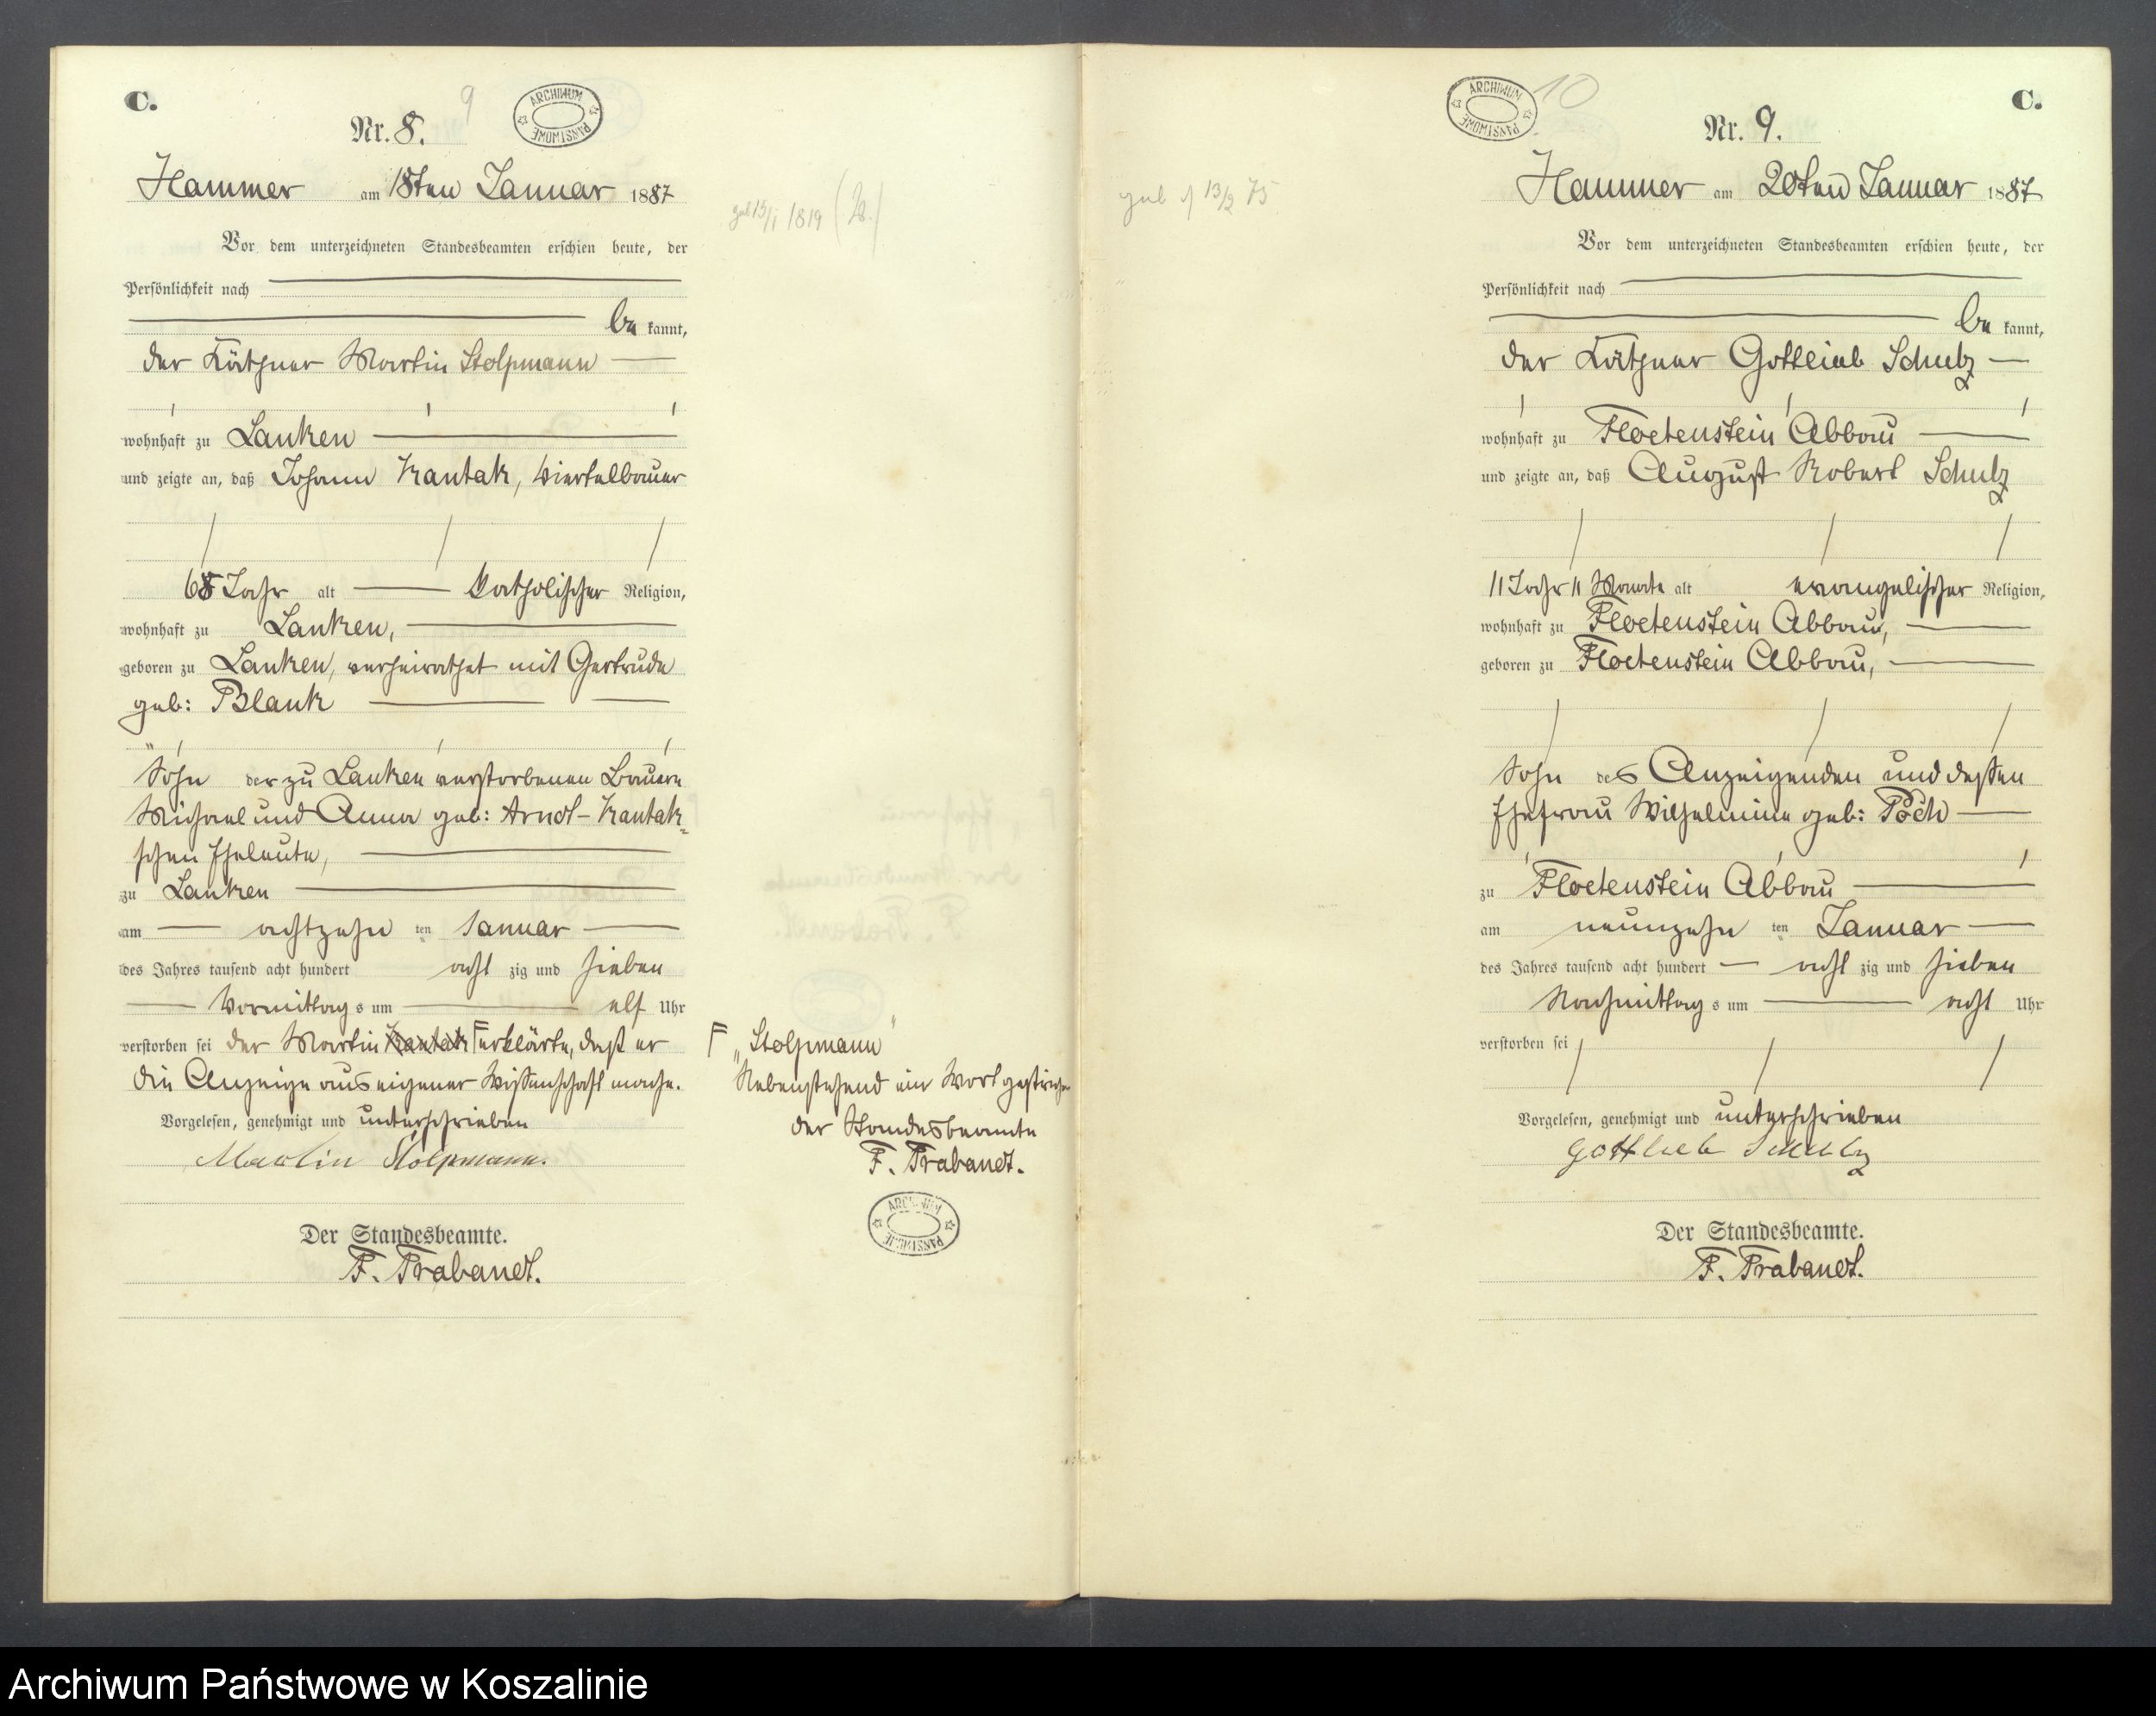 C.
9
ARCHIWUM PAŃSTWOWE
Nr. 8.
Hammer am 18ten Januar 1887
Vor dem unterzeichneten Standesbeamten erschien heute, der
Persönlichkeit nach
be kannt,
der Käthner Martin Stolpmann
wohnhaft zu Lanken
und zeigte an, daß Johann Kantak, Viertelbauer
68 Jahr alt katholischer Religion,
wohnhaft zu Lanken,
geboren zu Lanken, verheirathet mit Gertrude
geb: Blank
Sohn der zu Lanken verstorbenen Bauern
Michael und Anna geb: Arndt-Kantak-
schen Eheleute,
zu Lanken
am achtzehn ten Januar
des Jahres tausend acht hundert acht zig und sieben
Vormittag s um elf Uhr
verstorben sei der Martin Kantak F erklärte, daß er
die Anzeige aus eigener Wissenschaft mache.
Vorgelesen, genehmigt und unterschrieben
Martin Stolpmann.
Der Standesbeamte.
F. Trabandt.
geb 15/1 1819
F „Stolpmann"
Nebenstehend ein Wort gestrichen
der Standesbeamte
F. Trabandt.
ARCHIWUM PAŃSTWOWE
geb 13/2 75
ARCHIWUM PAŃSTWOWE
10
C.
Nr. 9.
Hammer am 20ten Januar 1887
Vor dem unterzeichneten Standesbeamten erschien heute, der
Persönlichkeit nach
be kannt,
der Käthner Gottlieb Schulz
wohnhaft zu Floetenstein Abbau
und zeigte an, daß August Robert Schulz
11 Jahr 11 Monate alt evangelischer Religion,
wohnhaft zu Floetenstein Abbau,
geboren zu Floetenstein Abbau,
Sohn des Anzeigenden und dessen
Ehefrau Wilhelmine geb: Poch
zu Floetenstein Abbau
am neunzehn ten Januar
des Jahres tausend acht hundert acht zig und sieben
Nachmittag s um acht Uhr
verstorben sei
Vorgelesen, genehmigt und unterschrieben
Gottlieb Schulz
Der Standesbeamte.
F. Trabandt.
Archiwum Państwowe w Koszalinie